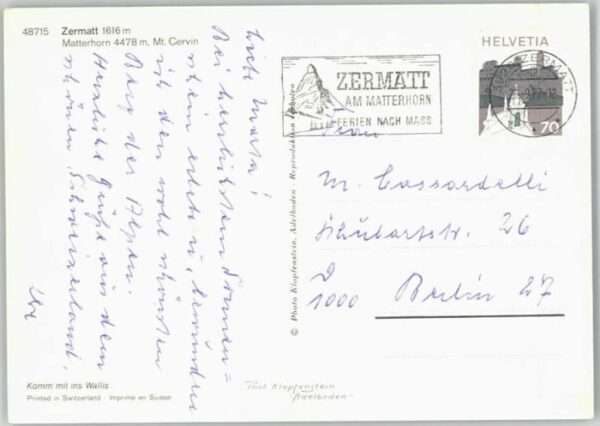 48715 Zermatt 1616 m
Matterhorn 4478 m, Mt. Cervin
Liebe Marta!
Bei herrlichstem Sonnen=
schein erleb u. bewundern
ich den wohl schönsten
Berg der Alpen.
Herzliche Grüße aus dem
schönen Schweizerland,
Ihre
Komm mit ins Wallis
Printed in Switzerland - Imprimé en Suisse
© Photo Klopfenstein, Adelboden - Reproduktion verboten
ZERMATT
AM MATTERHORN
FERIEN NACH MASS
HELVETIA
ZERMATT
70
Frau
M. Cassardelli
Schubartstr. 26
D
1000 Berlin 27
Phot Klopfenstein
Adelboden